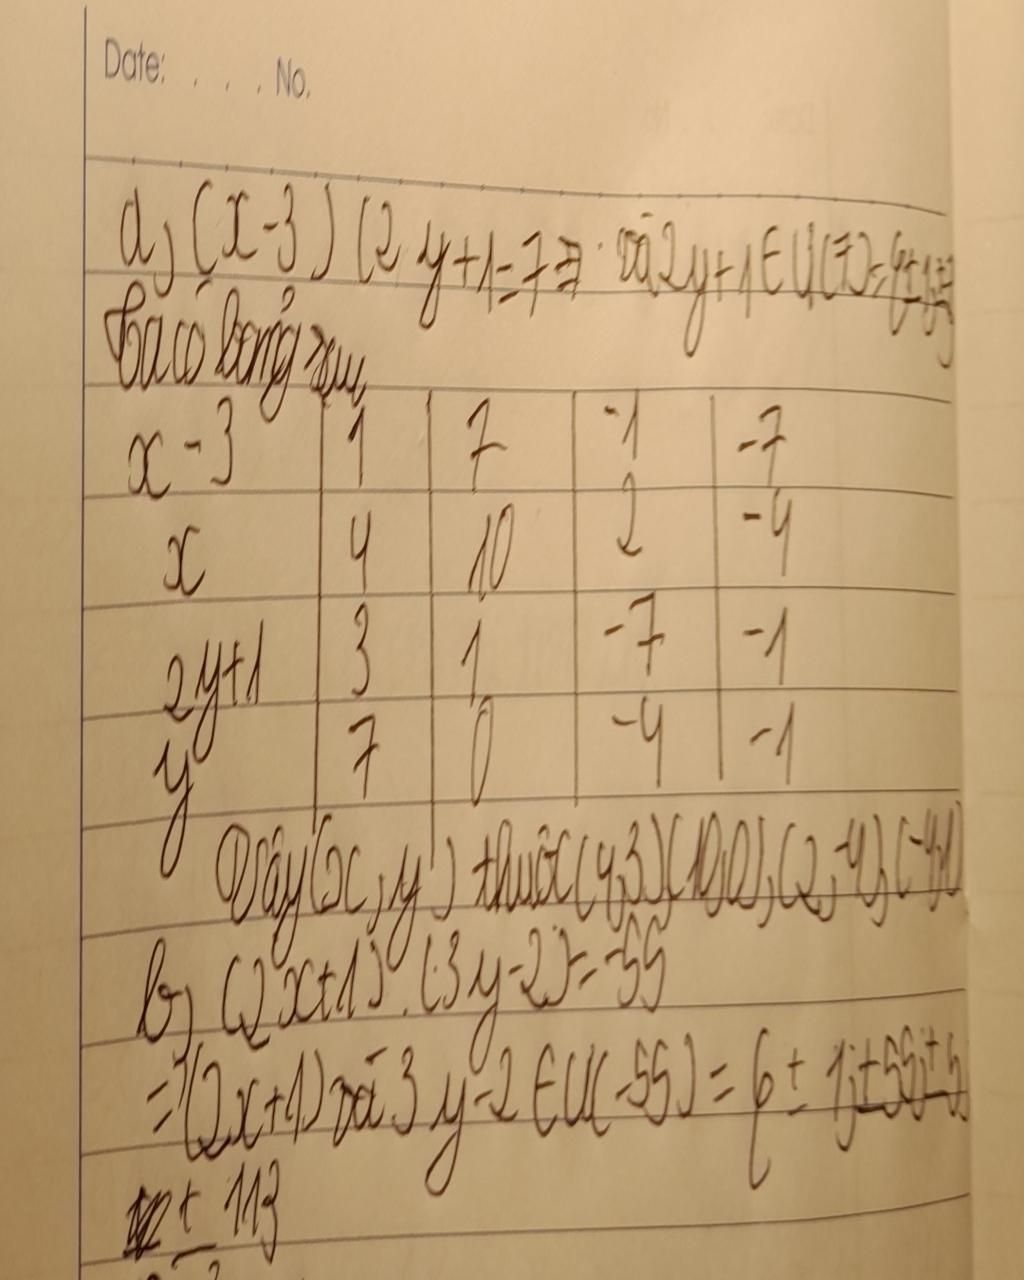 Date: . . . . No.
a, (x-3) (2 y+1=7 => và 2y+1 ∈ Ư(7)={±1;±7
Ta có bảng sau
x-3 1 7 -1 -7
x 4 10 2 -4
2y+1 3 1 -7 -1
y 7 0 -4 -1
Vậy (x, y) thuộc (4,3)(10,0),(2,-4),(-4,-1)
b, (2x+1).(3y-2)=-55
=>(2x+1) và 3y-2 ∈ Ư(-55) = { ± 1; ±55; ±5;
± 11}